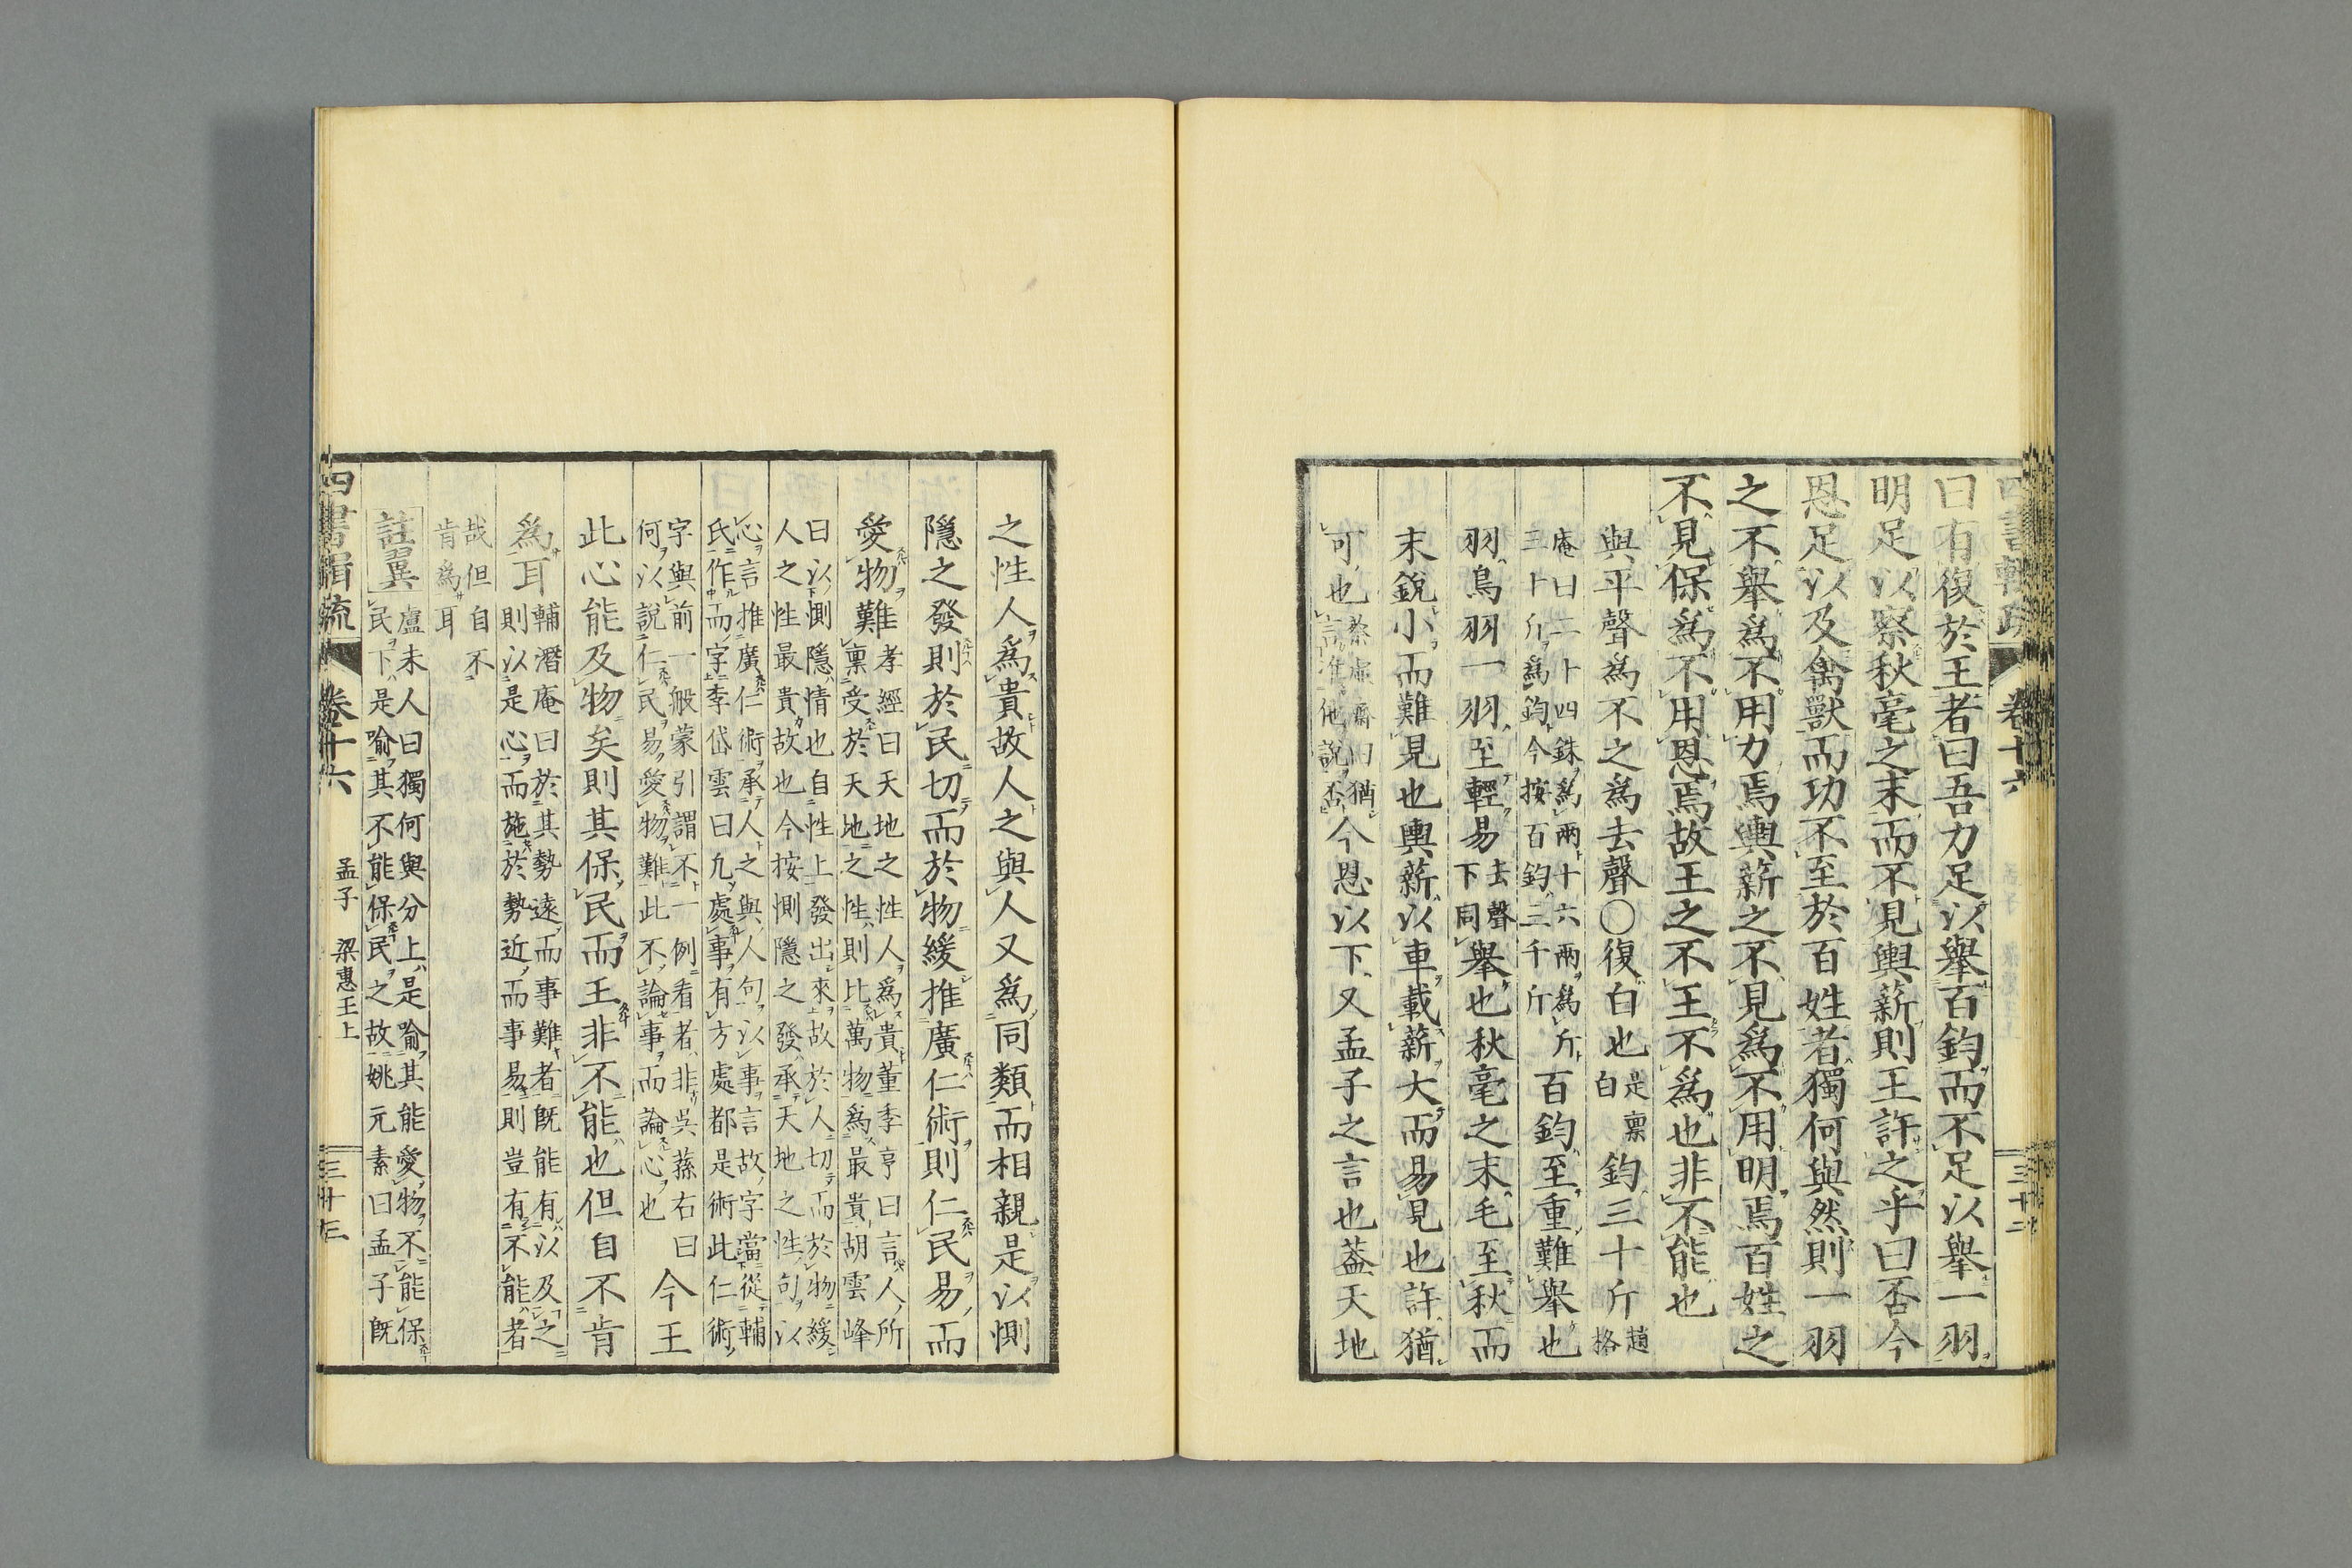 曰有復於王者曰吾力足以舉百鈞而不足以舉一羽
明足以察秋毫之末而不見輿薪則王許之乎曰否今
恩足以及禽獸而功不至於百姓者獨何與然則一羽
之不舉爲不用力焉輿薪之不見爲不用明焉百姓之
不見保爲不用恩焉故王之不王不爲也非不能也
與平聲爲不之爲去聲○復白也是稟白鈞三十斤趙格
庵曰二十四銖爲兩十六兩爲斤三十斤爲鈞今按百鈞三千斤百鈞至重難舉也
羽鳥羽一羽至輕易去聲下同舉也秋毫之末毛至秋而
末銳小而難見也輿薪以車載薪大而易見也許猶
可也蔡虛齋曰猶言准他說否今恩以下又孟子之言也蓋天地
四書輯疏 卷十六 三十二
之性人爲貴故人之與人又爲同類而相親是以惻
隱之發則於民切而於物緩推廣仁術則仁民易而
愛物難孝經曰天地之性人爲貴董季亨曰言人所稟受於天地之性則比萬物爲最貴胡雲峰
曰以惻隱情也自性上發出來故於人切而於物緩人之性最貴故也今按惻隱之發承天地之性句以
心言推廣仁術承人之與人句以事言故字當從輔氏作而字季岱雲曰凡處事有方處都是術此仁術
字與前一般蒙引謂不一例看者非吳蓀右曰何以說仁民易愛物難此不論事而論心也今王
此心能及物矣則其保民而王非不能也但自不肯
爲耳輔潛庵曰於其勢遠而事難者既能有以及之則以是心而施於勢近而事易則豈有不能者
哉但自不肯爲耳
註翼盧未人曰獨何與分上是喻其能愛物不能保民下是喻其不能保民之故姚元素曰孟子既
四書輯疏 卷十六 孟子 梁惠王上 三十三